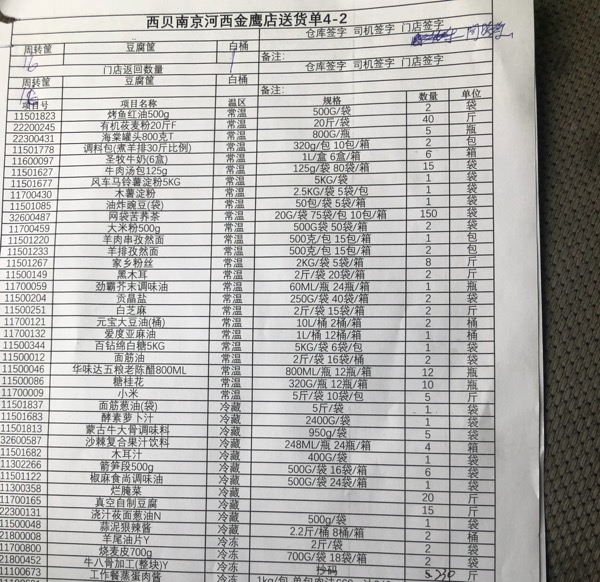 西贝南京河西金鹰店送货单4-2
周转筐 豆腐筐 白桶 仓库签字 司机签字 门店签字
16 1
备注:
门店返回数量 仓库签字 司机签字 门店签字
周转筐 豆腐筐 白桶
备注:
项目号 项目名称 温区 规格 数量 单位
11501823 烤鱼红油500g 常温 500G/袋 2 袋
22200245 有机莜麦粉20斤F 常温 20斤/袋 40 斤
22300431 海棠罐头800克T 常温 800G/瓶 5 瓶
11501778 调料包(煮羊排30斤比例) 常温 320g/包 10包/箱 2 包
11600097 圣牧牛奶(6盒) 常温 1L/盒 6盒/箱 6 箱
11501627 牛肉汤包125g 常温 125g/袋 80袋/箱 15 袋
11501677 风车马铃薯淀粉5KG 常温 5KG/袋 1 袋
11700430 木薯淀粉 常温 2.5KG/袋 5袋/包 1 袋
11501085 油炸豌豆(袋) 常温 50包/袋 5袋/箱 1 袋
32600487 网袋苦荞茶 常温 20G/袋 75袋/包 10包/箱 150 袋
11700459 大米粉500g 常温 500G/袋 50袋/箱 2 袋
11501220 羊肉串孜然面 常温 500克/包 15包/箱 1 包
11501233 羊排孜然面 常温 500克/包 15包/箱 2 包
11501267 家乡粉丝 常温 2KG/袋 5袋/箱 8 斤
11500149 黑木耳 常温 2斤/袋 20袋/箱 2 斤
11700059 劲霸芥末调味油 常温 60ML/瓶 24瓶/箱 1 瓶
11500204 贡晶盐 常温 250G/袋 40袋/箱 2 袋
11500251 白芝麻 常温 2斤/袋 15袋/箱 2 斤
11700121 元宝大豆油(桶) 常温 10L/桶 2桶/箱 2 桶
11700132 爱度亚麻油 常温 1L/桶 12桶/箱 2 桶
11500344 百钻绵白糖5KG 常温 5KG/袋 6袋/包 1 袋
11500012 面筋油 常温 2斤/袋 16袋/桶 2 桶
11500046 华味达五粮老陈醋800ML 常温 800ML/瓶 12瓶/箱 12 瓶
11500086 糖桂花 常温 320G/瓶 12瓶/箱 10 瓶
11700009 小米 常温 5斤/袋 10袋/包 5 斤
11501837 面筋葱油(袋) 冷藏 5斤/袋 1 袋
11501683 酵素萝卜汁 冷藏 2400G/袋 1 袋
11501813 蒙古牛大骨调味料 冷藏 950g/袋 5 袋
32600587 沙棘复合果汁饮料 冷藏 248ML/瓶 24瓶/箱 4 箱
11501682 木耳汁 冷藏 400G/袋 1 袋
11302266 箭笋段500g 冷藏 500G/袋 16袋/箱 6 袋
11501122 椒麻食尚调味油 冷藏 500G/袋 24袋/箱 1 袋
11300358 烂腌菜 冷藏 20 斤
11700165 真空自制豆腐 冷藏 15 斤
22300131 浇汁莜面葱油N 冷藏 500g/袋 1 袋
11500048 蒜泥狠辣酱 冷藏 2.2斤/桶 8桶/箱 2 桶
21800008 羊尾油片Y 冷冻 2斤/袋 2 袋
11700800 烧麦皮700g 冷冻 700G/袋 18袋/箱 2 袋
21800452 牛八骨加工(整块)Y 冷冻 抄码 5.230 斤
11100673 工作餐蒸蛋肉酱 冷冻